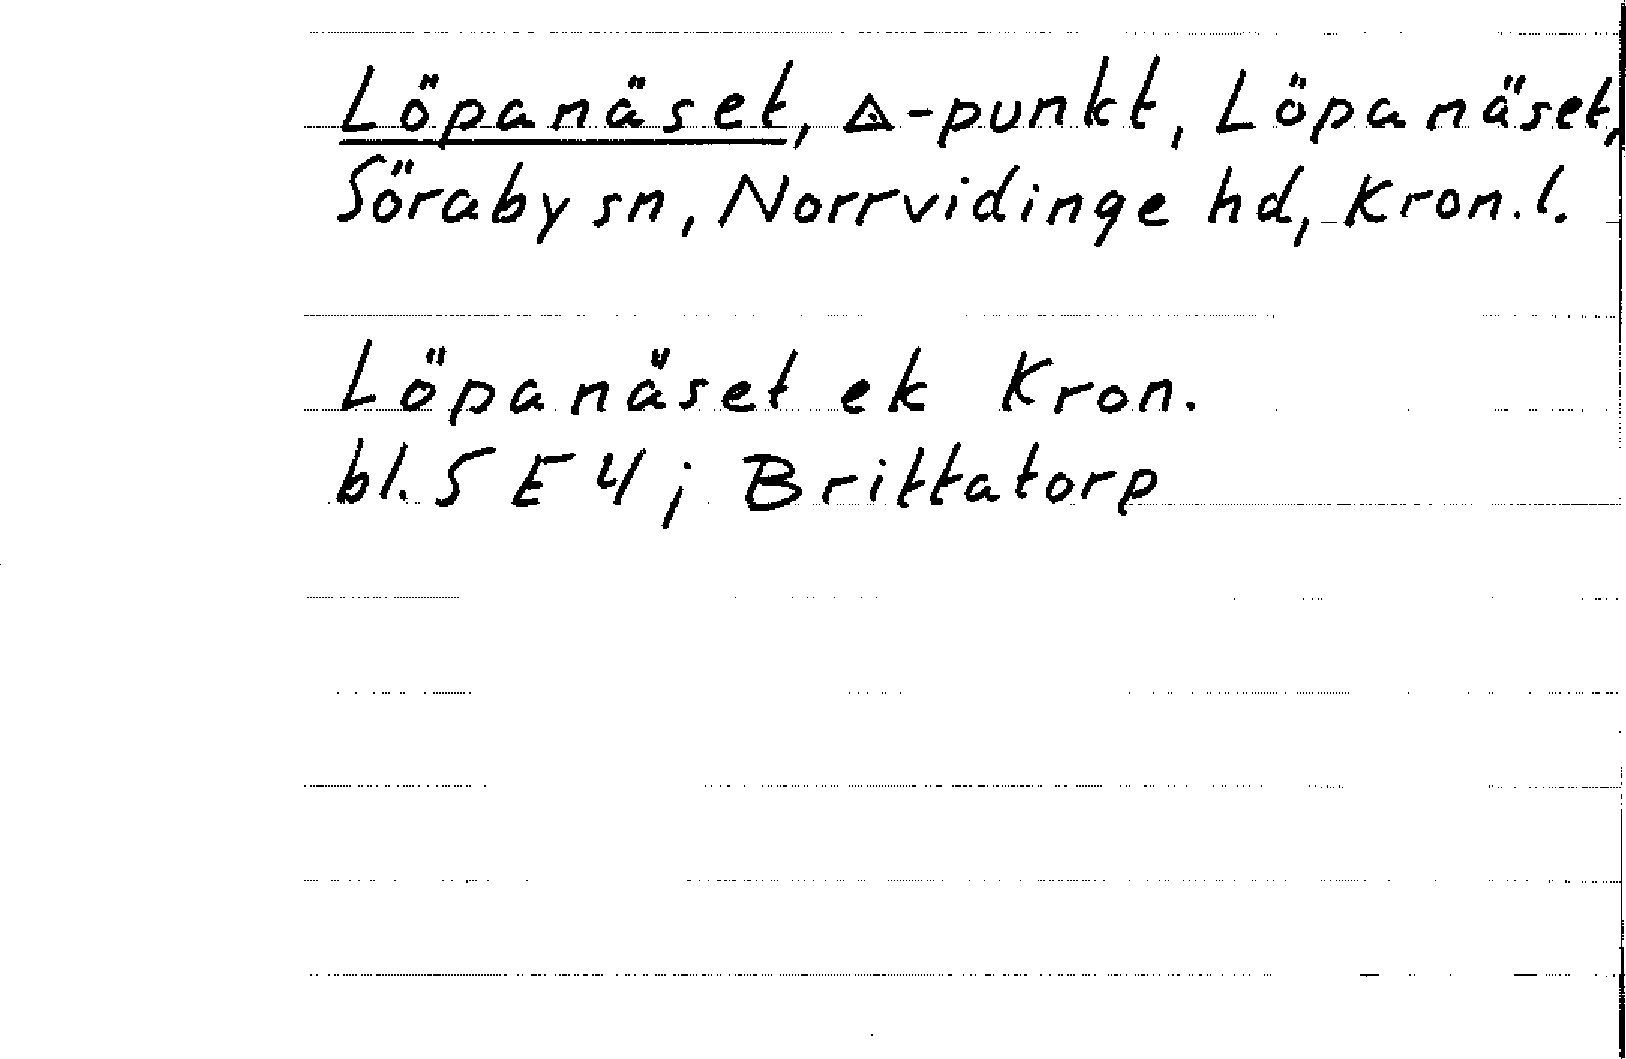 Löpanäset, △-punkt, Löpanäset,
Söraby sn, Norrvidinge hd, Kron. l.
Löpanäset ek Kron.
bl. 5 E 4; Brittatorp